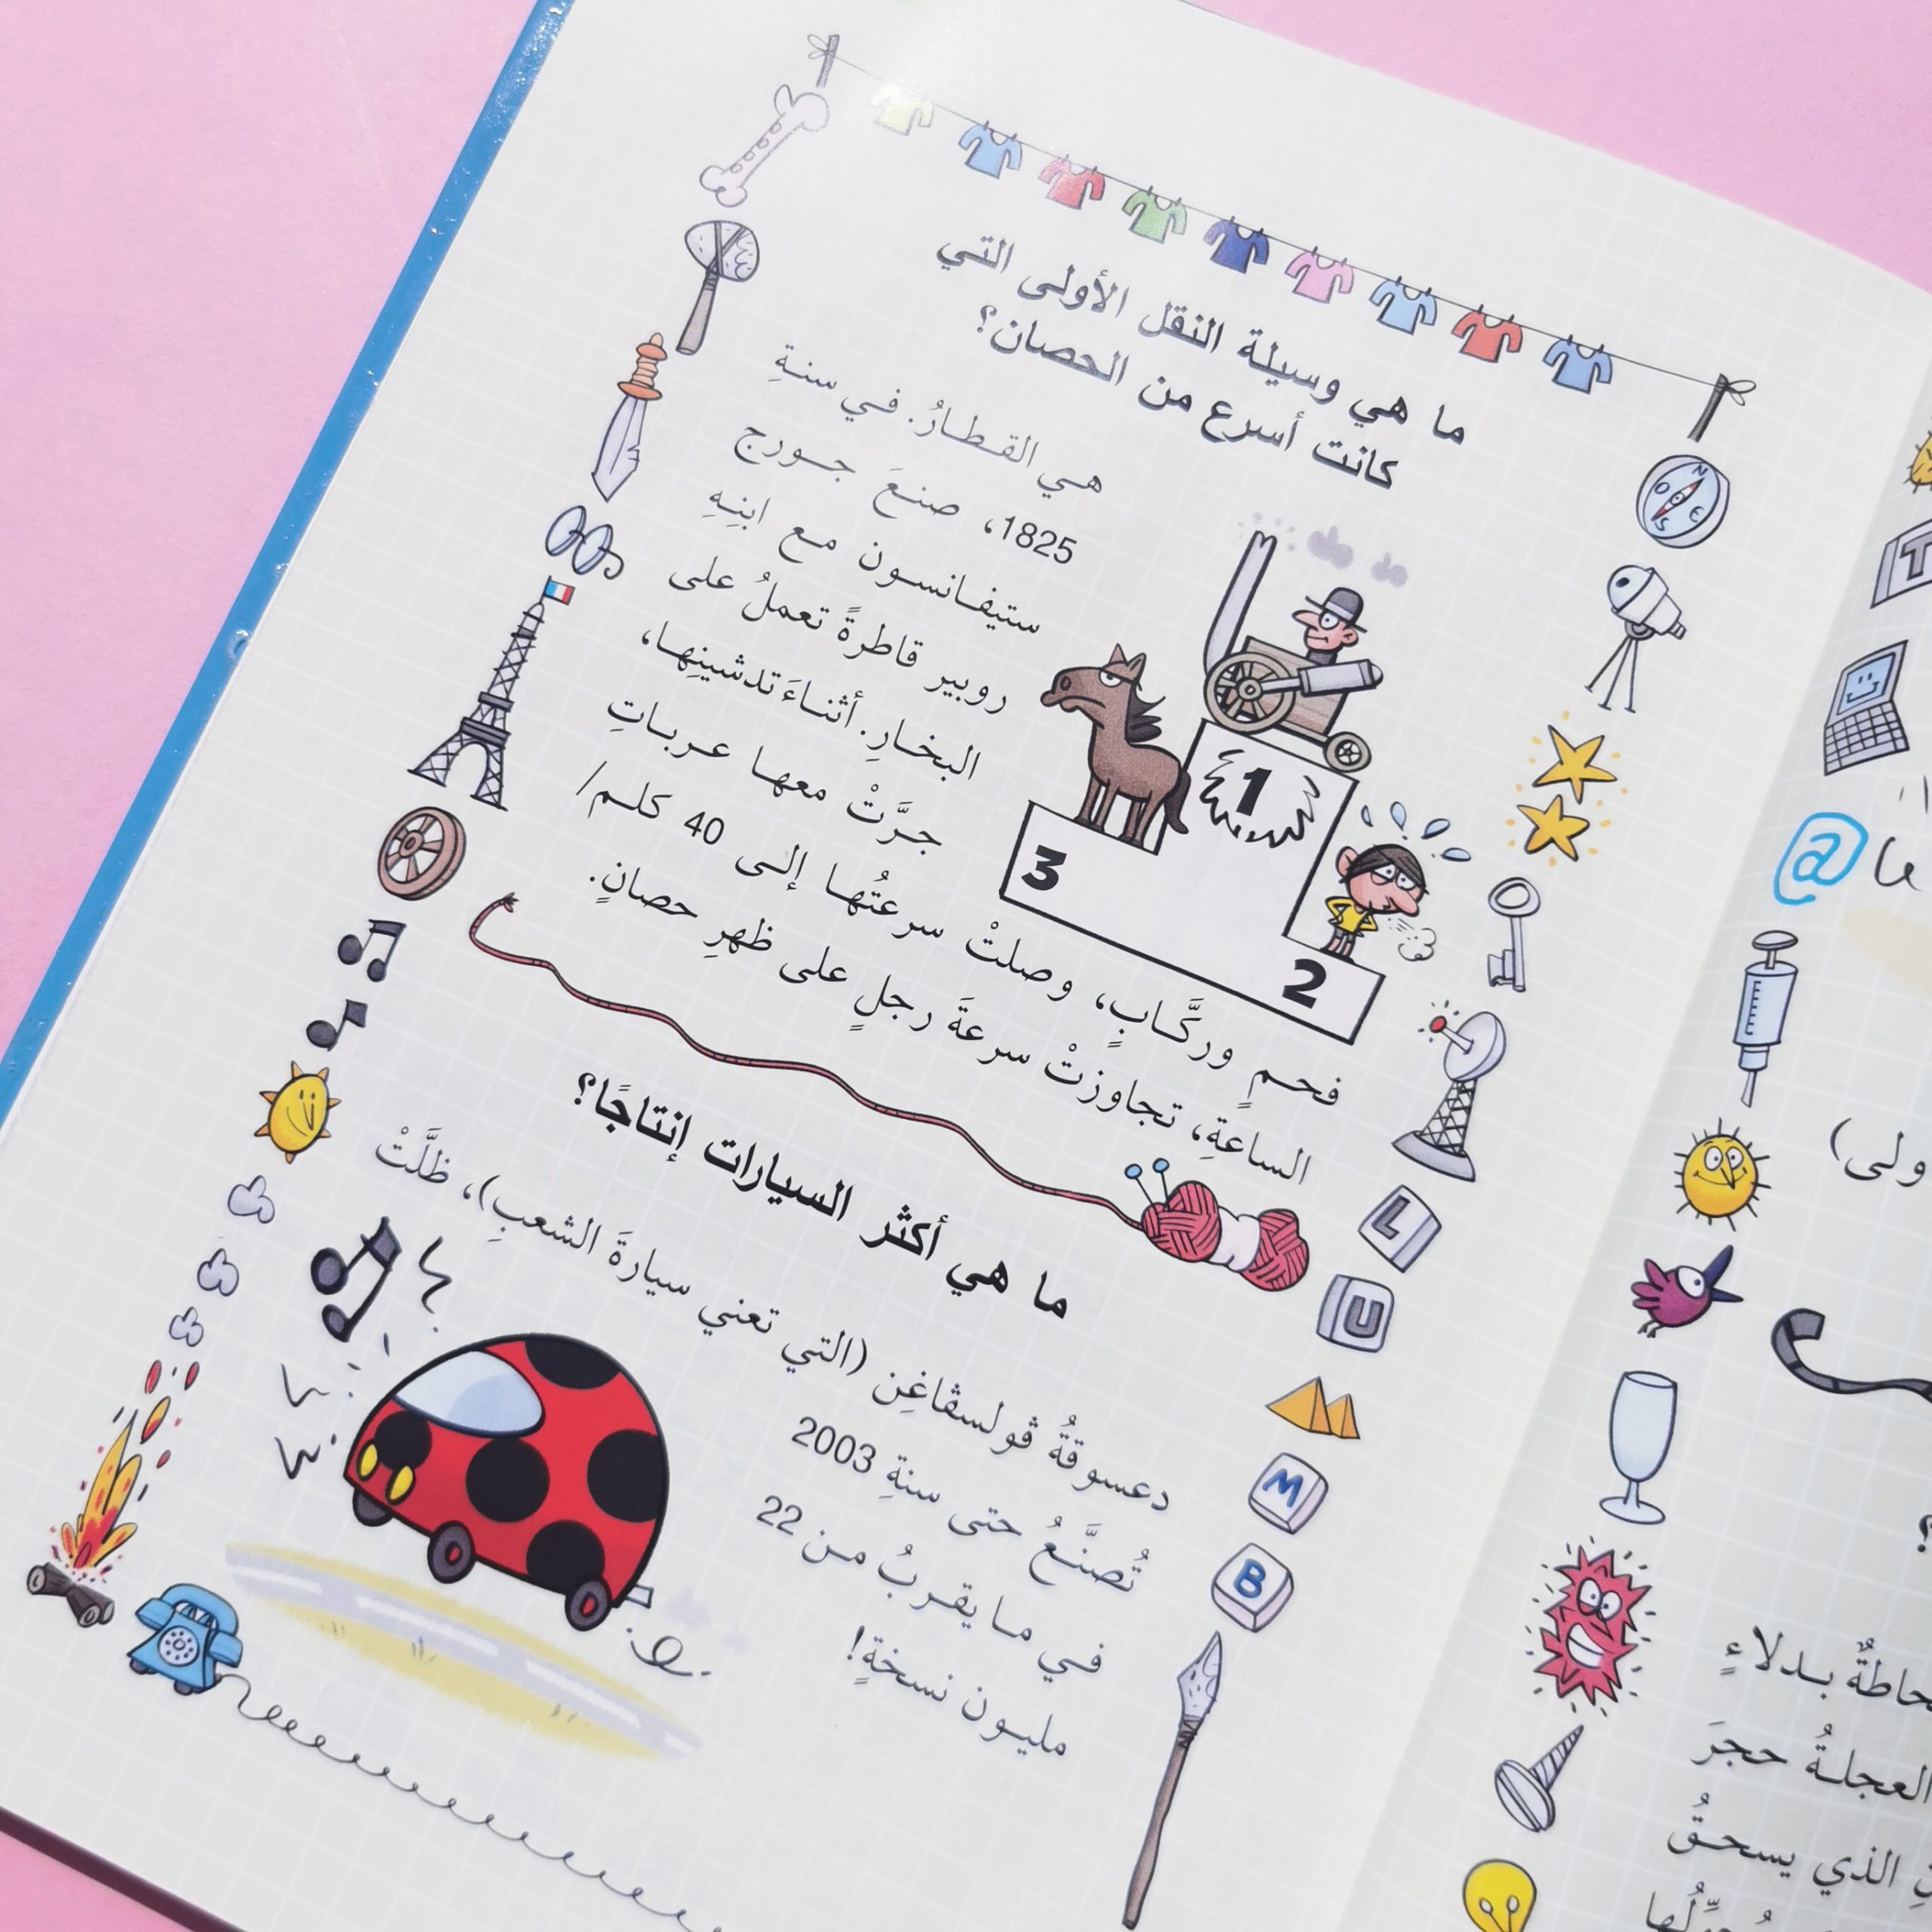 ما هي وسيلة النقل الأولى التي
كانت أسرع من الحصان؟
هي القطارُ. في سنةِ
1825، صنعَ جورج
ستيفانسون مع ابنِهِ
روبير قاطرةً تعملُ على
البخارِ. أثناءَ تدشينِها،
جرَّتْ معها عرباتِ
فحمٍ وركَّابٍ، وصلتْ سرعتُها إلى 40 كلم/
الساعةِ، تجاوزتْ سرعةَ رجلٍ على ظهرِ حصانٍ.
1
3
2
ما هي أكثر السيارات إنتاجًا؟
دعسوقةُ ڤولسڤاغِن (التي تعني سيارةَ الشعبِ)، ظلَّتْ
تُصنَّعُ حتى سنةِ 2003
في ما يقربُ من 22
مليون نسخةٍ!
N
O
E
S
L
U
M
B
T
@
ولى)
؟
بدلاءٍ
العجلةُ حجرَ
الذي يسحقُ